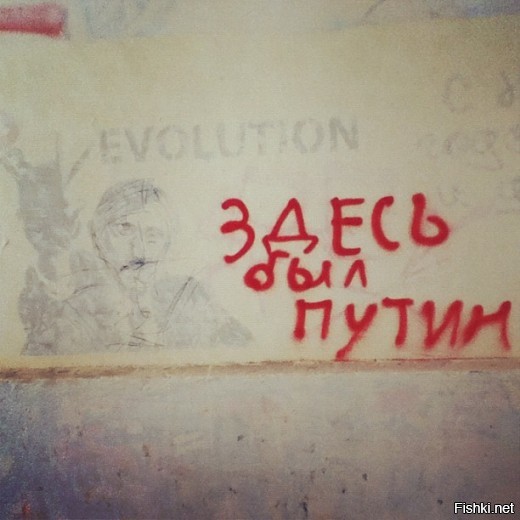 EVOLUTION
ЗДЕСЬ
был
ПУТИН
Fishki.net